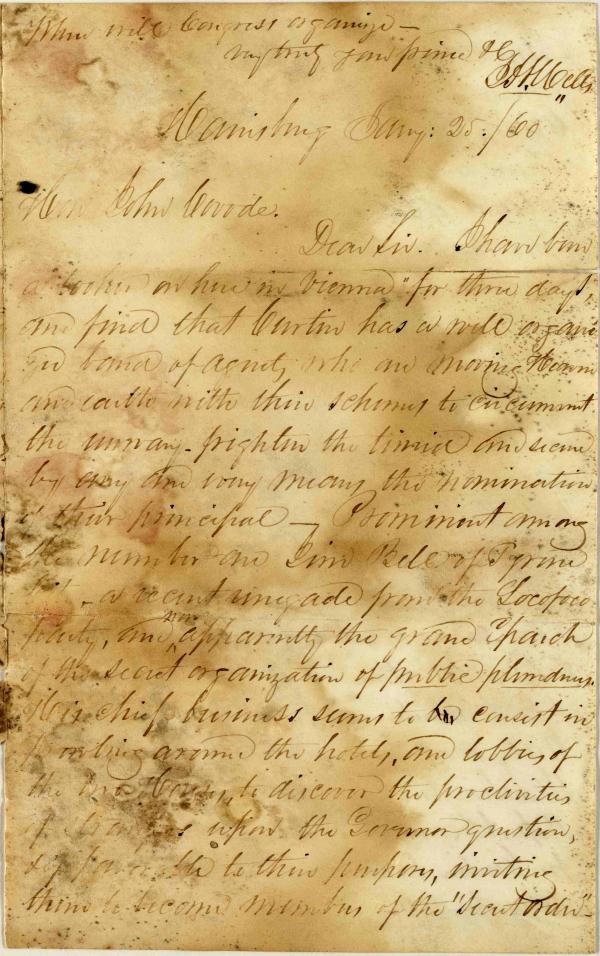 When will Congress organize –
very truly your friend &c
Harrisburg Jany: 25./60
Hon John Covode.
Dear Sir. I have been
a looker on here in Vienna" for three days,
and find that Curtin has a well organi
zed band of agents who are moving Heaven
and earth with their schemes to circumvent
the unwary – frighten the timid and secure
by any and every means, the nomination
of their principal – Prominent among
the number are Bell of Tyrone
– a recent renegade from the Locofoco
party, and now apparently the grand Eparch
of the secret organization of public plunderers.
His chief business seems to consist in
prowling around the hotels, and lobbies of
the two Houses, to discover the proclivities
of strangers upon the Governor question,
& if favorable to their purposes, inviting
them to become members of the "Secret order"–